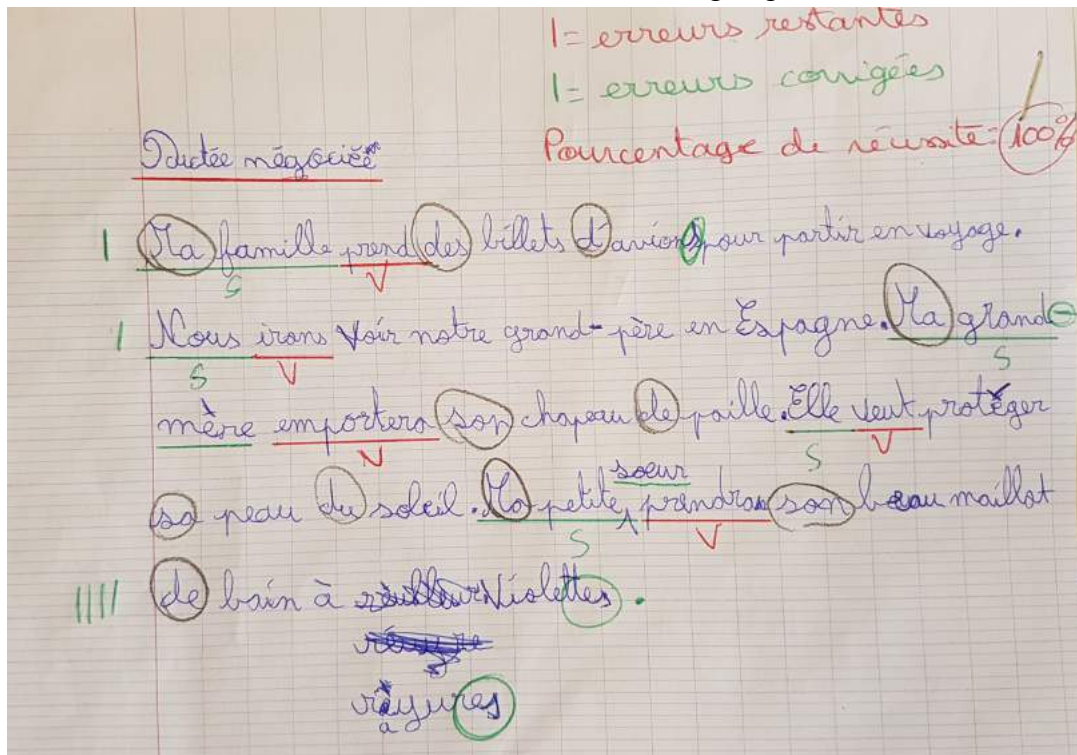 I = erreurs restantes
I = erreurs corrigées
Pourcentage de réussite = 100%
Dictée négociée
I Ma famille prend des billets d'avions pour partir en voyage.
S V
I Nous irons voir notre grand-père en Espagne. Ma grand-
S V S
mère emportera son chapeau de paille. Elle veut protéger
V S V
soeur
sa peau du soleil. Ma petite prendra son beau maillot
S V
IIIII de bain à violettes.
rayures
a